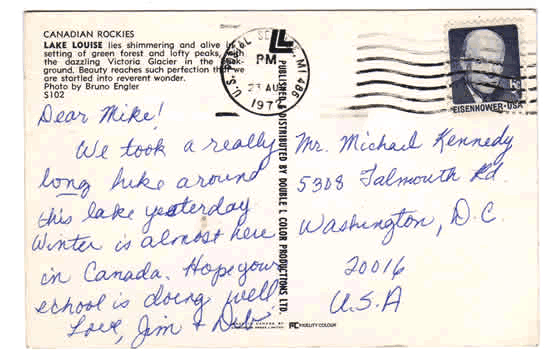 CANADIAN ROCKIES
LAKE LOUISE lies shimmering and alive in a
setting of green forest and lofty peaks, with
the dazzling Victoria Glacier in the back-
ground. Beauty reaches such perfection that we
are startled into reverent wonder.
Photo by Bruno Engler
S102
Dear Mike!
We took a really
long hike around
this lake yesterday
Winter is almost here
in Canada. Hope your
school is doing well
Love, Jim + Deb
PUBLISHED & DISTRIBUTED BY DOUBLE L COLOR PRODUCTIONS LTD.
FIDELITY COLOUR
U.S. POSTAL SERVICE, MI 486
PM
23 AUG
197
EISENHOWER·USA
Mr. Michael Kennedy
5308 Falmouth Rd.
Washington, D.C.
20016
U.S.A